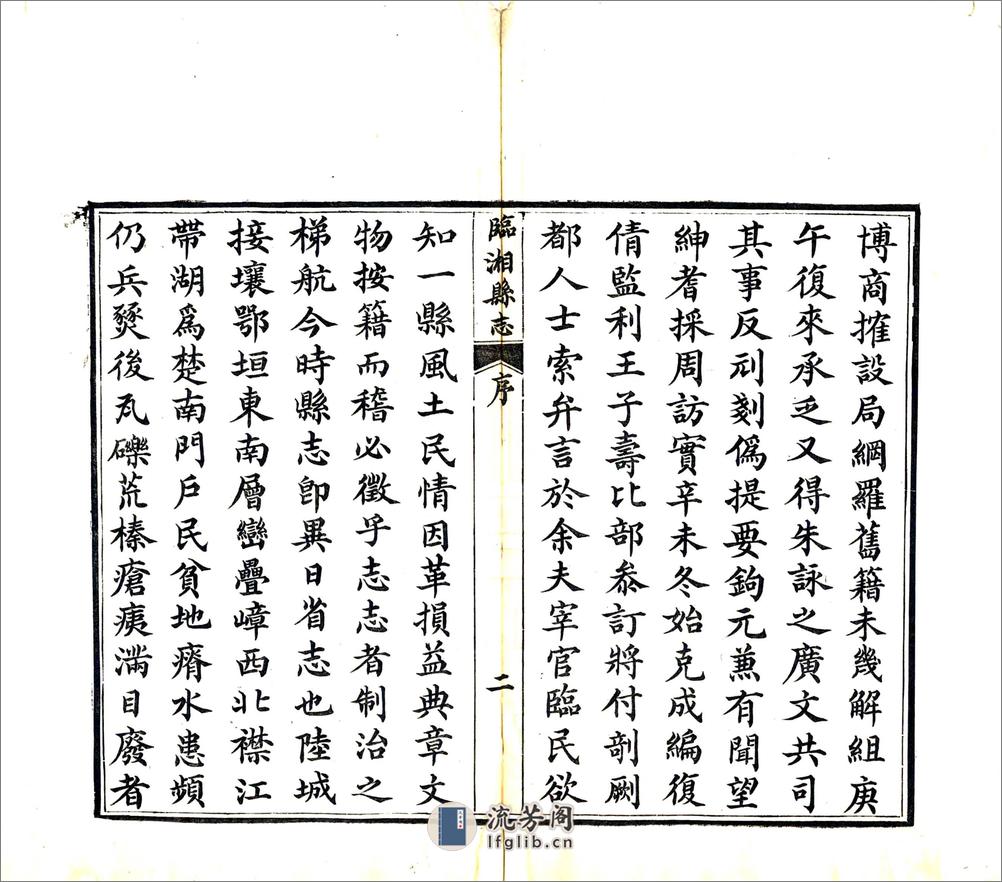 博商搉設局網羅舊籍未幾解組庚
午復來承乏又得朱詠之廣文共司
其事反刓剗偽提要鉤元兼有聞望
紳耆採周訪實辛未冬始克成編復
倩監利王子壽比部叅訂將付剞劂
都人士索弁言於余夫宰官臨民欲
臨湘縣志 序 二
知一縣風土民情因革損益典章文
物按籍而稽必徵乎志志者制治之
梯航今時縣志卽異日省志也陸城
接壤鄂垣東南層巒疊嶂西北襟江
帶湖爲楚南門戶民貧地瘠水患頻
仍兵燹後瓦礫荒榛瘡痍滿目廢者
流芳阁
lfglib.cn